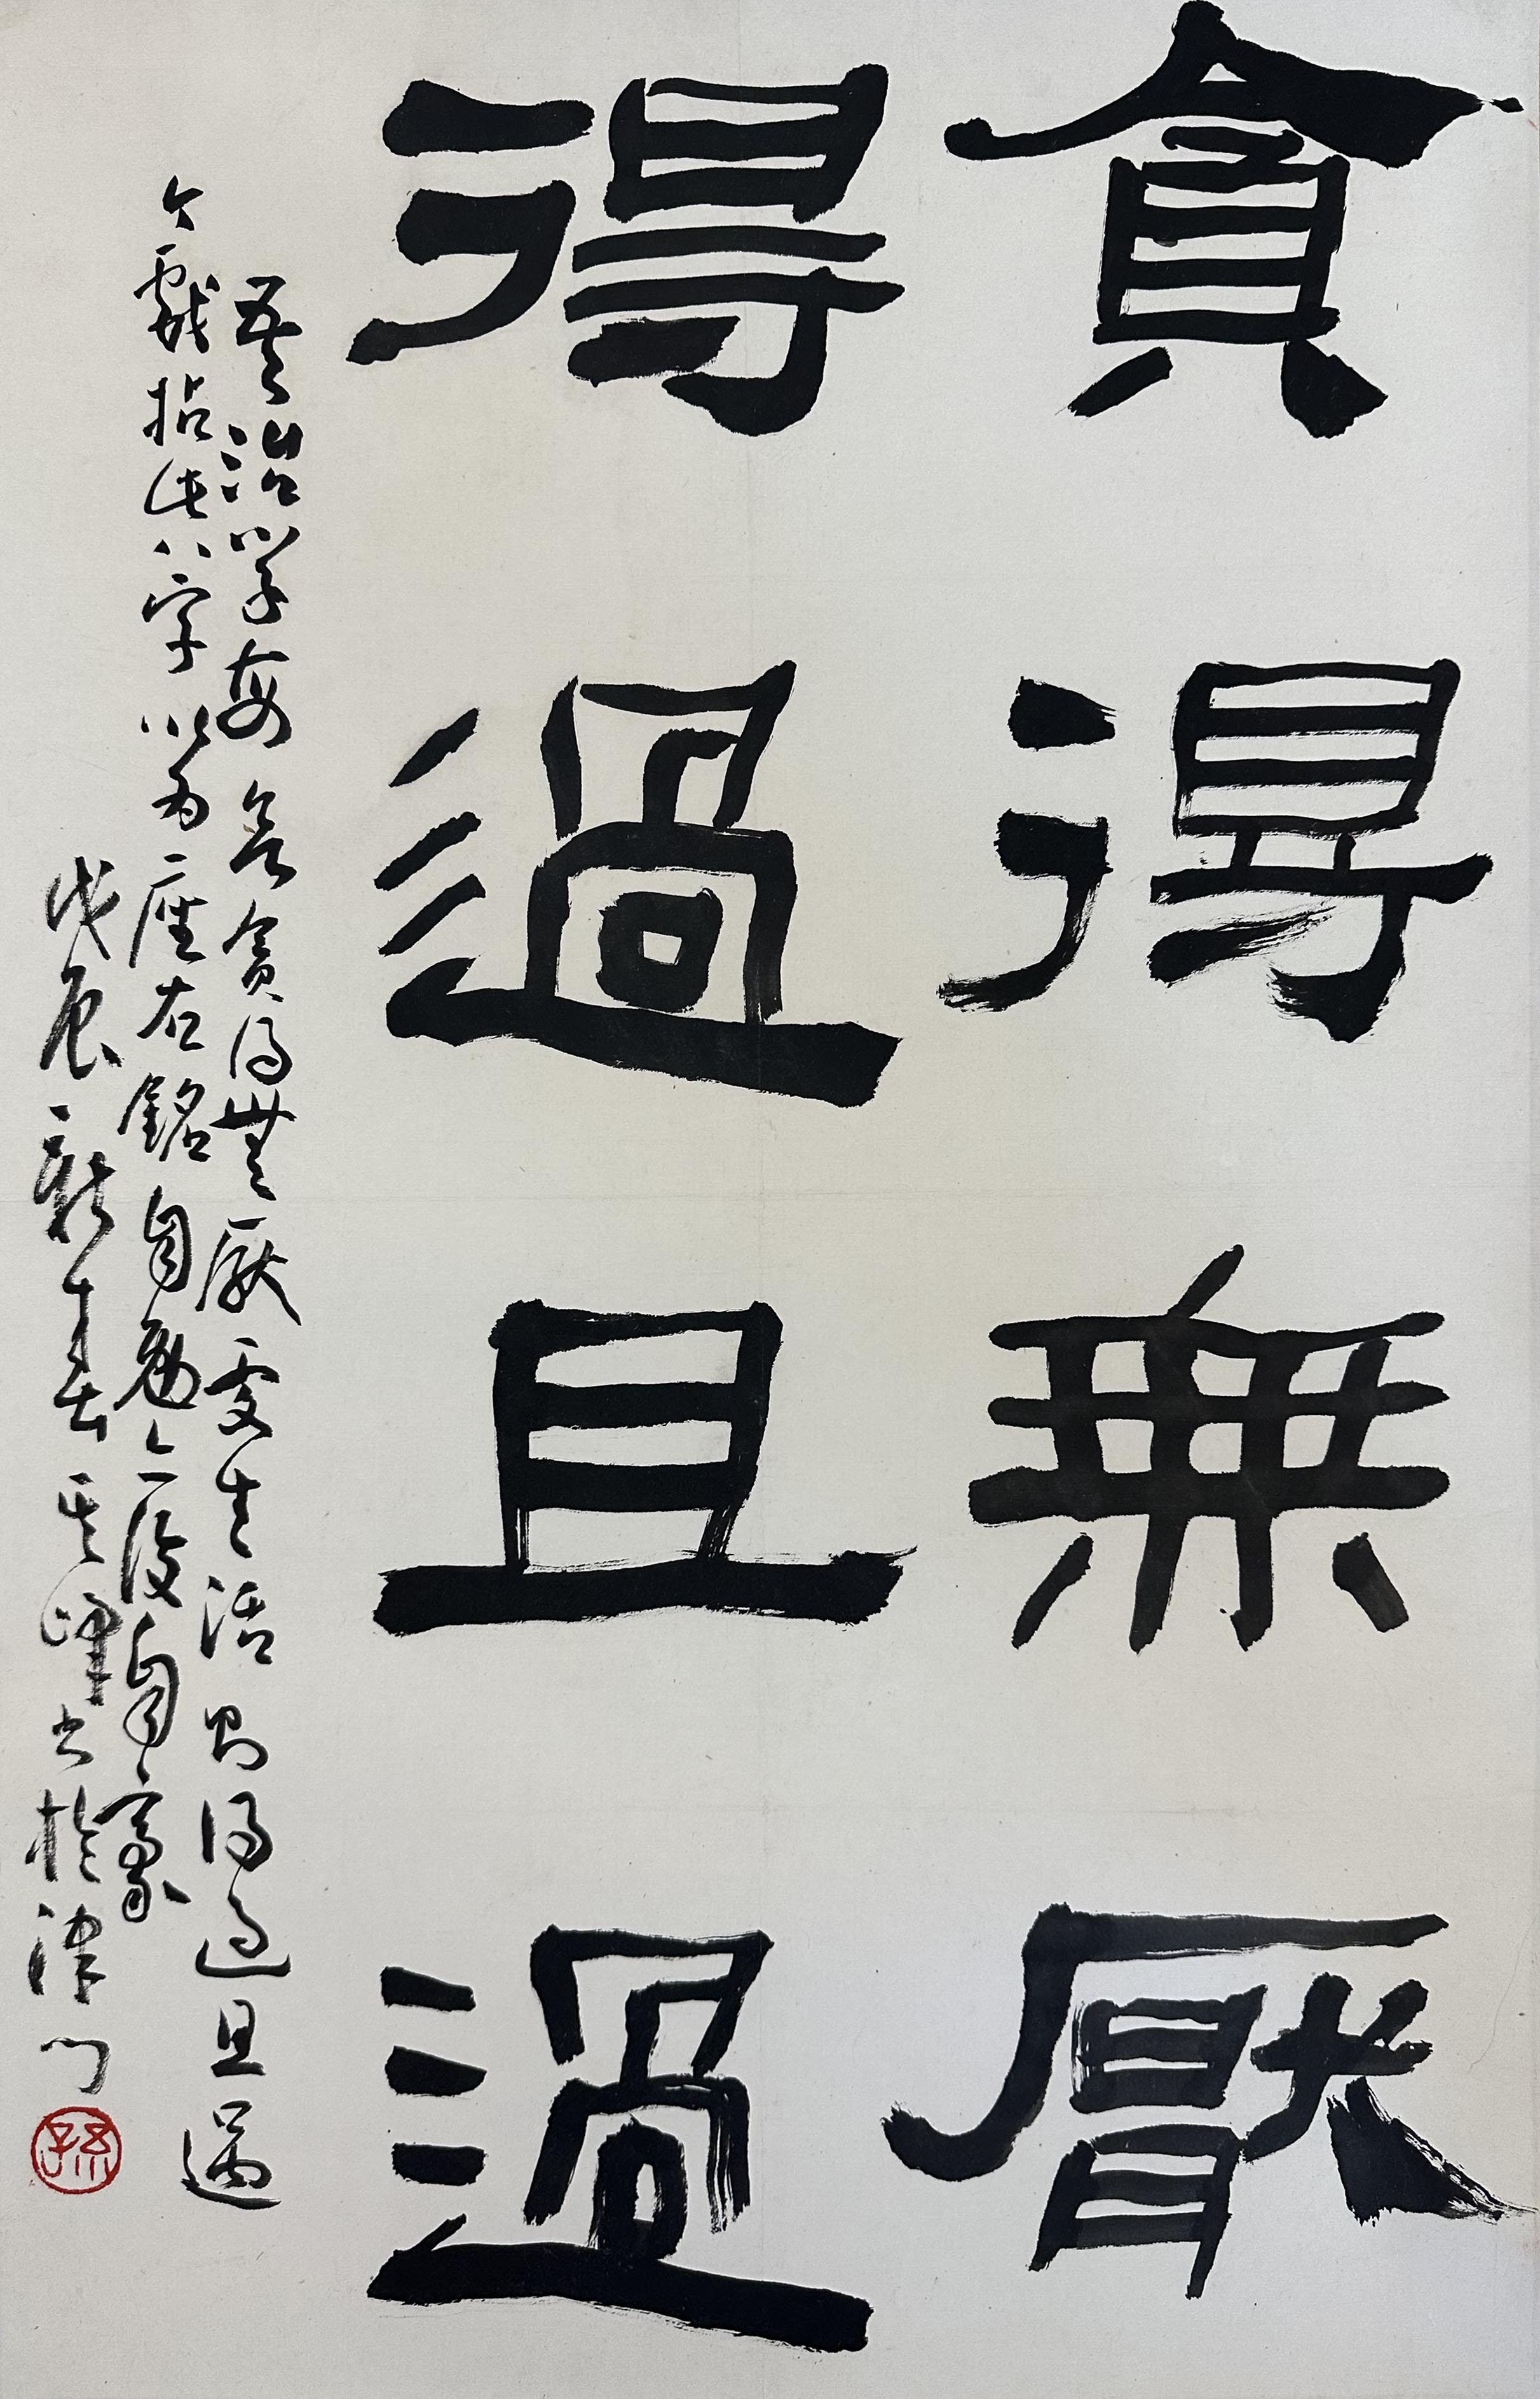 貪得無厭
得過且過
吾治學每貪得無厭 生活則得過且過
今戲拈此八字以為座右銘自勉亦復自豪
戊辰新春其峰書於津門
孫